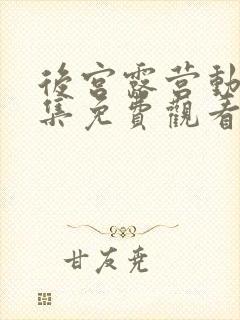 後宮露营動
集免費觀看
甘友尧